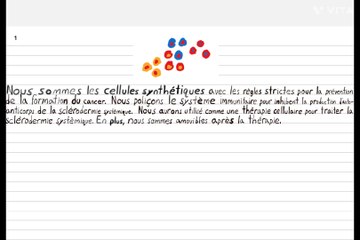 1
Nous sommes les cellules synthétiques avec les règles strictes pour la prévention
de la formation du cancer. Nous poliçons le système immunitaire pour inhibent la production
anticorps de la sclérodermie systémique. Nous aurons utilisé comme une thérapie cellulaire pour traiter la
sclérodermie systémique. En plus, nous sommes amovibles après la thérapie.